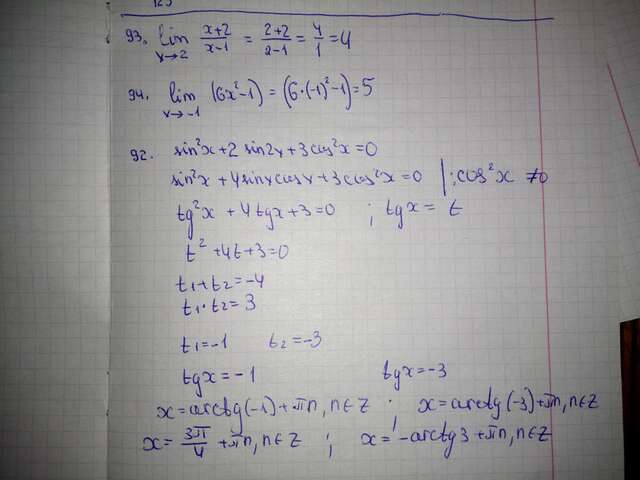 123
93. lim x→2 x+2/x-1 = 2+2/2-1 = 4/1 = 4
94. lim x→-1 (6x²-1) = (6·(-1)²-1) = 5
92. sin²x+2 sin2x+3cos²x=0
sin²x+4sinxcosx+3cos²x=0 |:cos²x ≠0
tg²x + 4tgx+3=0 ; tgx = t
t²+4t+3=0
t₁+t₂=-4
t₁·t₂=3
t₁=-1 t₂=-3
tgx=-1 tgx=-3
x=arctg(-1)+πn, n∈Z ; x=arctg(-3)+πn, n∈Z
x= 3π/4 +πn, n∈Z ; x=-arctg3+πn, n∈Z